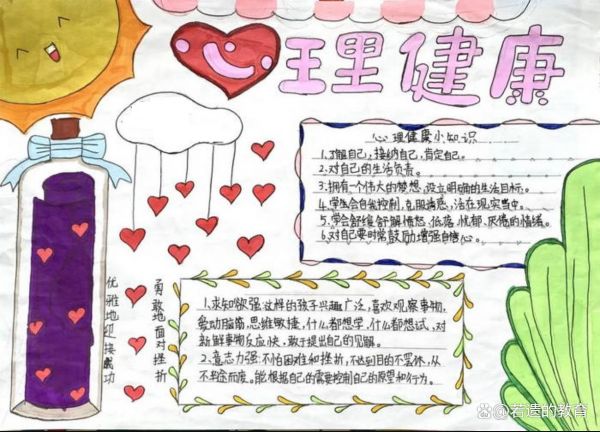 心理健康
心理健康小知识
1.了解自己,接纳自己,肯定自己。
2.对自己的生活负责。
3.拥有一个伟大的梦想,设立明确的生活目标。
4.学会自我控制,克服,活在现实当中。
5.学会舒缓舒解愤怒、低落、忧郁、厌倦的情绪。
6.对自己要时常鼓励增强自信心。
优雅地迎接成功
勇敢地面对挫折
1.求知欲强:这样的孩子兴趣广泛,喜欢观察事物,
爱动脑筋,思维敏捷,什么都想学,什么都想试,对
新鲜事物反应快,敢于提出自己的见解。
2.意志力强:不怕困难和挫折,不达到目的不罢休,从
不半途而废。能根据自己的需要控制自己的愿望和行为。
@若遗的教育